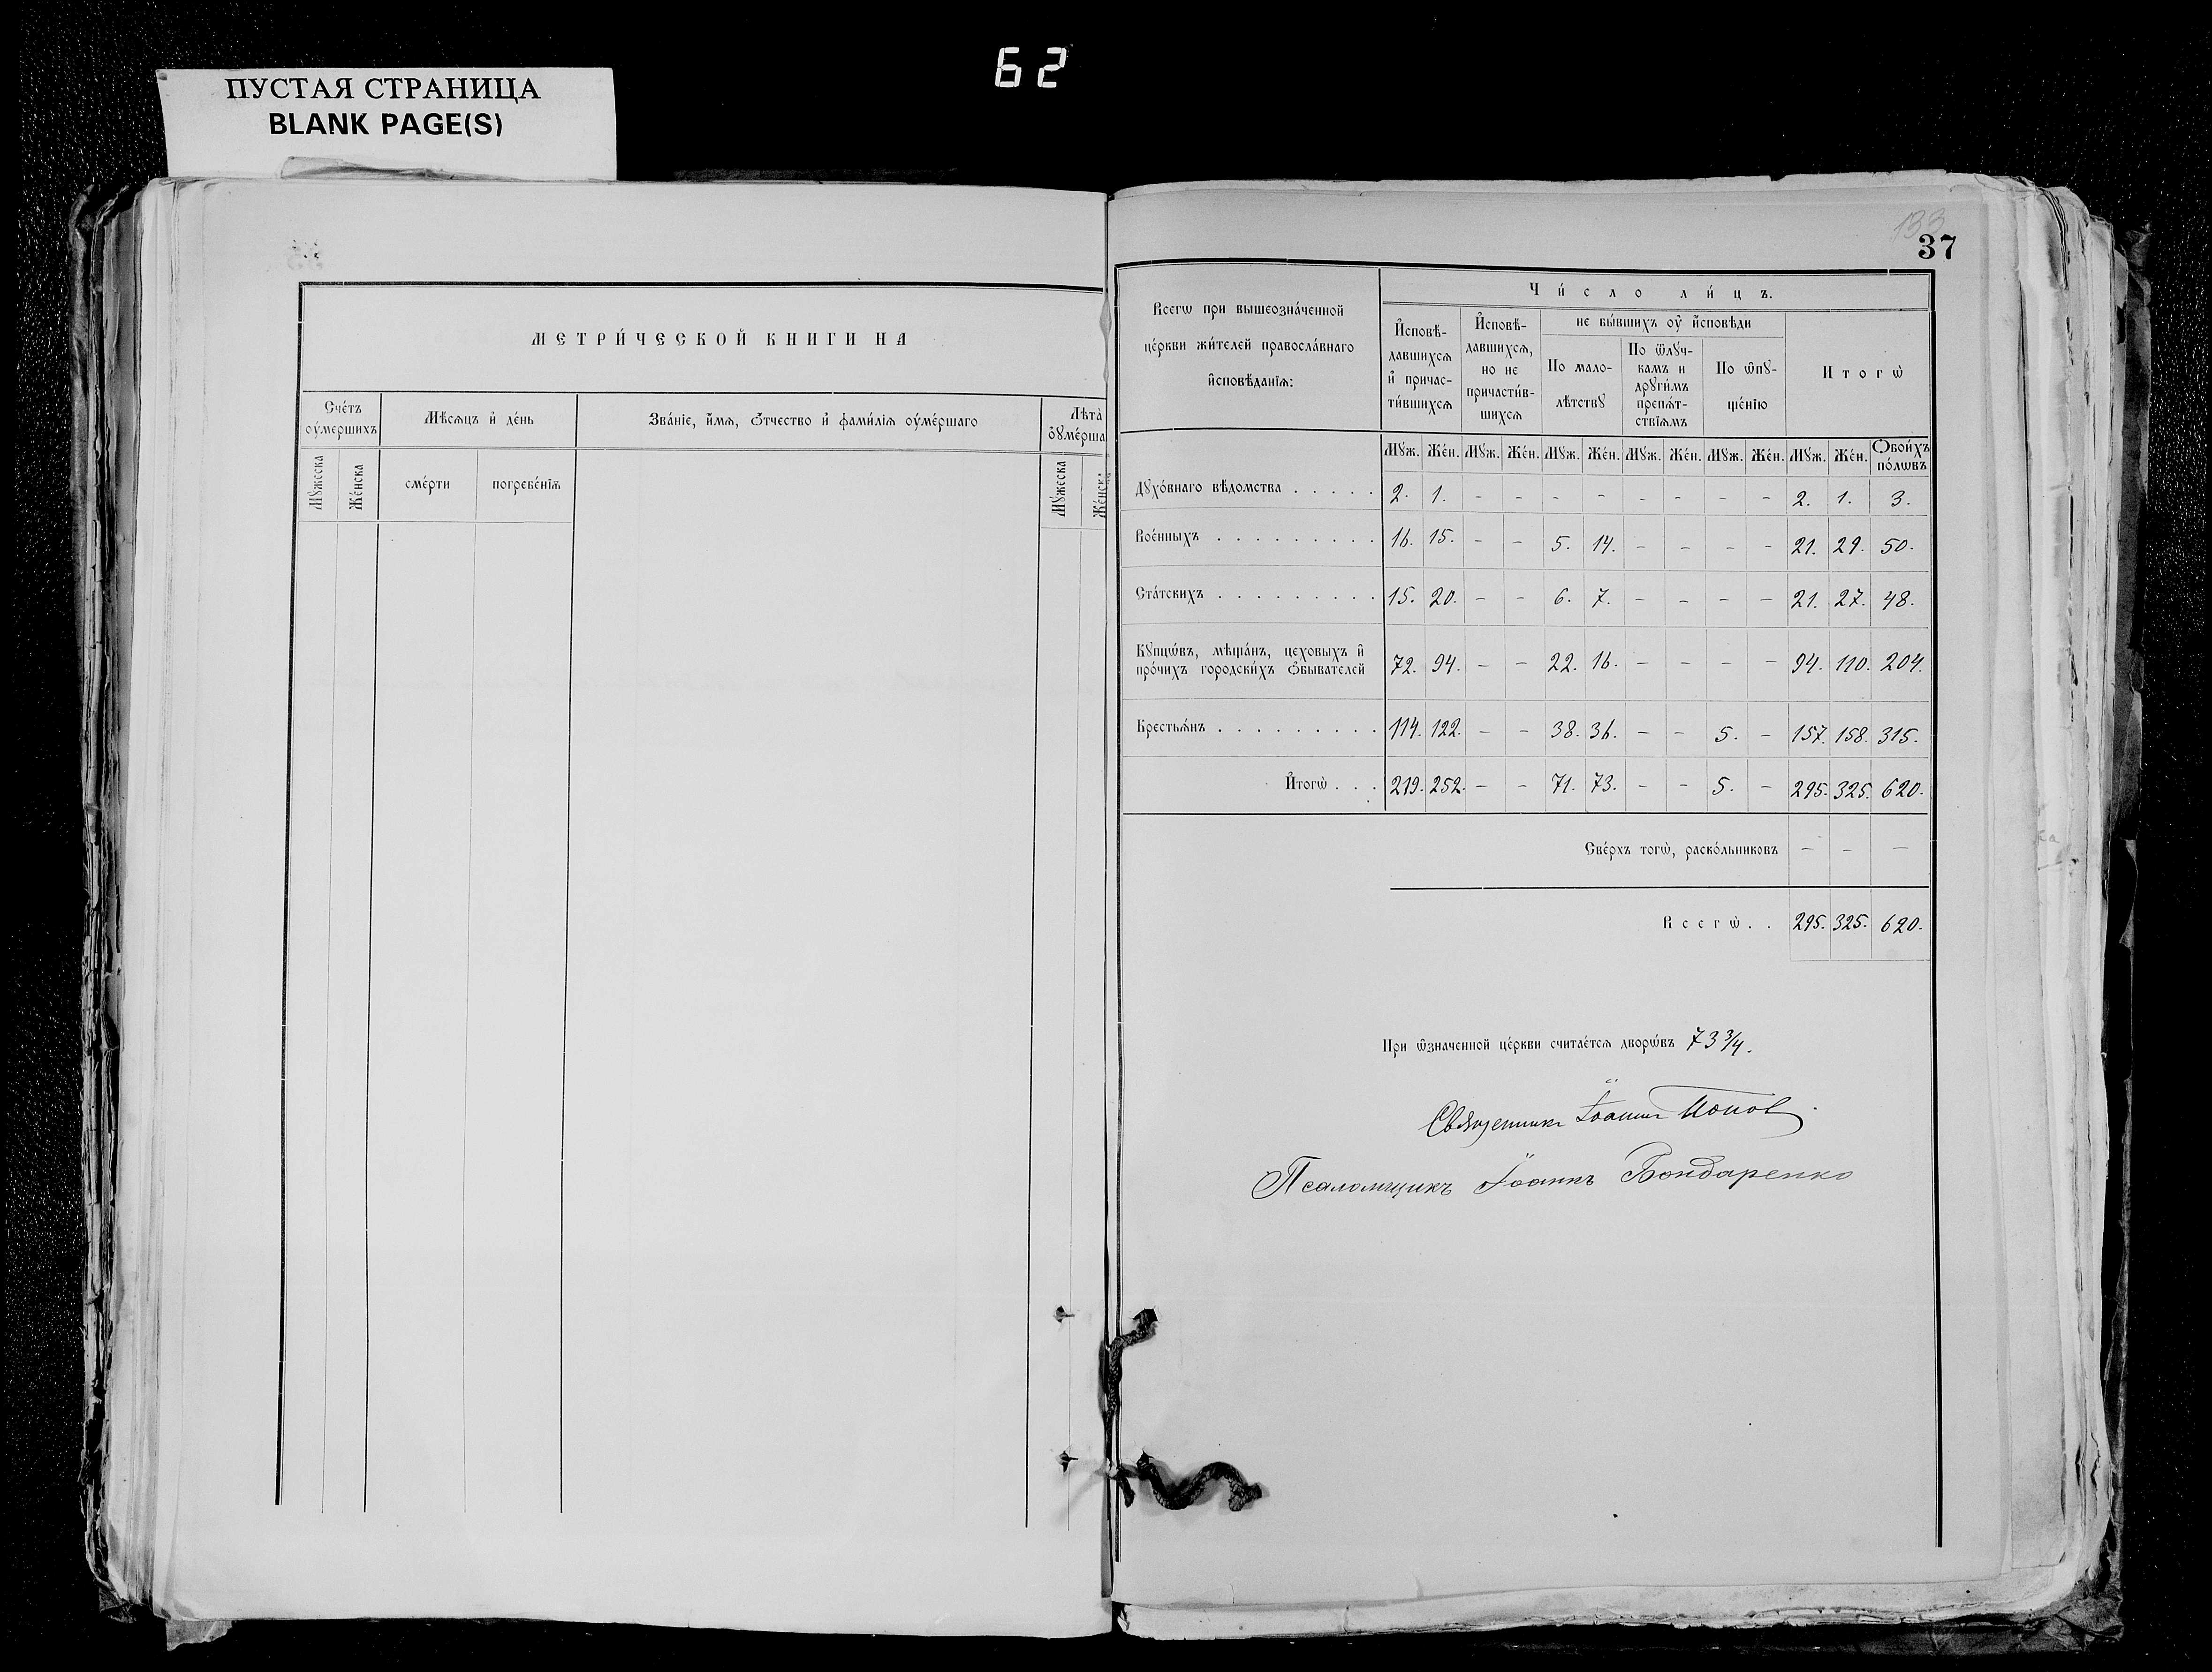 62
ПУСТАЯ СТРАНИЦА
BLANK PAGE(S)
МЕТРИ́ЧЕСКОЙ КНИГИ НА
Сче́тъ оу҆ме́ршихъ
Мѣ́сѧцъ и҆ де́нь
Зва́нїе, и҆́мѧ, ѻ҆́тчество и҆ фами́лїѧ оу҆ме́ршагѡ
Лѣта̀
Мꙋ́жеска Же́нска
сме́рти погребе́нїѧ
Мꙋ́жеска
37
Всегѡ при вышеозна́ченной
це́ркви жи́телей правосла́внаго
и҆сповѣ́данїѧ:
Чи́сло ли́цъ.
И҆сповѣ-
давшихсѧ
и҆ причас-
ти́вшихсѧ
И҆сповѣ-
давшихсѧ,
но не
причасти́в-
шихсѧ
не бы́вшихъ оу҆ и҆́сповѣди
По мало-
лѣтствꙋ
По ѿлꙋч-
камъ и
дрꙋги́мъ
препѧ́т-
ствїѧмъ
По ѡ҆пꙋ-
ще́нїю
Итогѡ̀
Мꙋж. Же́н. Мꙋж. Же́н. Мꙋж. Же́н. Мꙋж. Же́н. Мꙋж. Же́н. Мꙋж. Же́н. Ѻбои́хъ по́лѡвъ
Дꙋхо́внаго вѣ́домства . . . . . 2. 1. - - - - - - - - 2. 1. 3.
Вое́нныхъ . . . . . . . . . 16. 15. - - 5. 14. - - - - 21. 29. 50.
Ста́тскихъ . . . . . . . . . 15. 20. - - 6. 7. - - - - 21. 27. 48.
Кꙋпцѡ́въ, мѣща́нъ, цеховыхъ и҆
про́чихъ городски́хъ ѻ҆бывателей 72. 94. - - 22. 16. - - - - 94. 110. 204.
Крестьѧ́нъ . . . . . . . . . 114. 122. - - 38. 36. - - 5. - 157. 158. 315.
И҆тогѡ̀ . . . 219. 252. - - 71. 73. - - 5. - 295. 325. 620.
Све́рхъ тогѡ̀, раско́льниковъ - - -
Всегѡ̀ . . 295. 325. 620.
При ѡ҆значенной це́ркви считае́тсѧ дворѡ́въ 73 3/4.
Священникъ Іоаннъ Попов
Псаломщикъ Іоаннъ Бондаренко